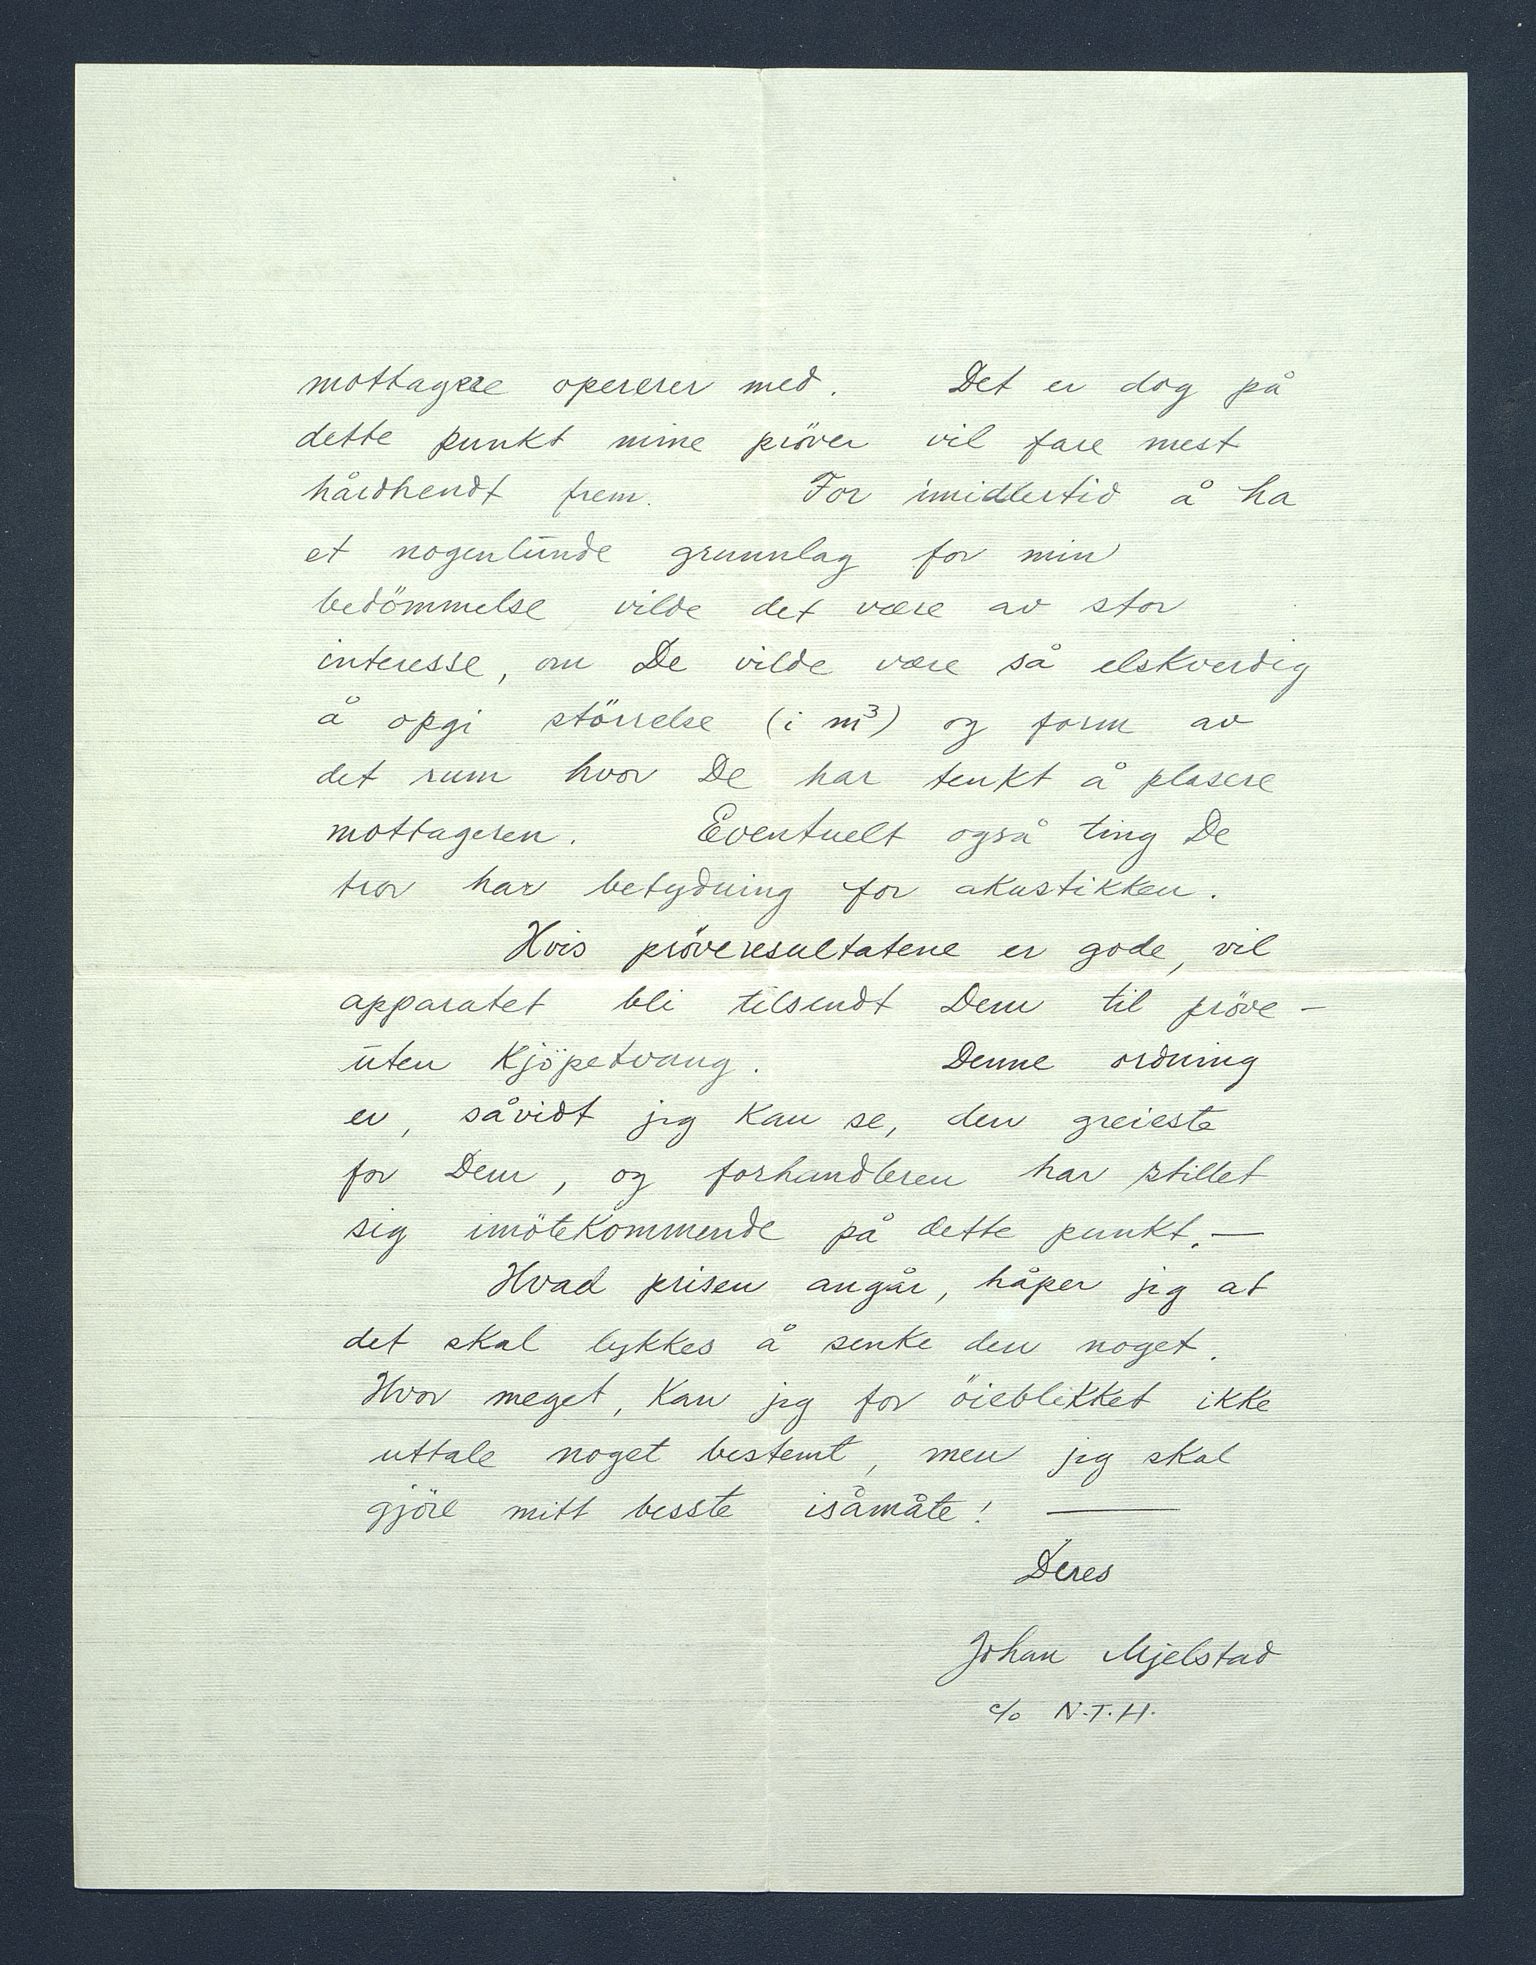 mottagere opererer med. Det er dog på
dette punkt mine pröver vil fare mest
hårdhendt frem. For imidlertid å ha
et nogenlunde grunnlag for min
bedömmelse, vilde det være av stor
interesse, om De vilde være så elskverdig
å opgi störrelse (i m³) og form av
det rum hvor De har tenkt å plasere
mottageren. Eventuelt også ting De
tror har betydning for akustikken.
Hvis pröveresultatene er gode, vil
apparatet bli tilsendt Dem til pröve –
uten kjöpetvang. Denne ordning
er, såvidt jeg kan se, den greieste
for Dem, og forhandleren har stillet
sig imötekommende på dette punkt. —
Hvad prisen angår, håper jeg at
det skal lykkes å senke den noget.
Hvor meget, kan jeg for öieblikket ikke
uttale noget bestemt, men jeg skal
gjöre mitt besste isåmåte! —
Deres
Johan Mjelstad
c/o N.T.H.